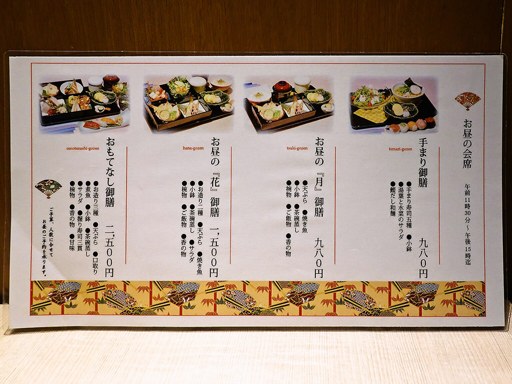 お昼の会席
午前11時30分～午後15時迄
手まり御膳 九八〇円
●手まり寿司五種 ●小鉢
●湯葉と水菜のサラダ
●鯛だし和麺
お昼の『月』御膳 九八〇円
●天ぷら ●焼き魚
●小鉢 ●茶碗蒸し
●椀物 ●ご飯物 ●香の物
お昼の『花』御膳 一、五〇〇円
●お造り二種 ●天ぷら ●焼き魚
●小鉢 ●茶碗蒸し ●サラダ
●椀物 ●ご飯物 ●香の物
おもてなし御膳 二、五〇〇円
●お造り三種 ●天ぷら ●口取り
●煮魚 ●小鉢 ●茶碗蒸し
●サラダ ●握り寿司三貫
●椀物 ●香の物 ●甘味